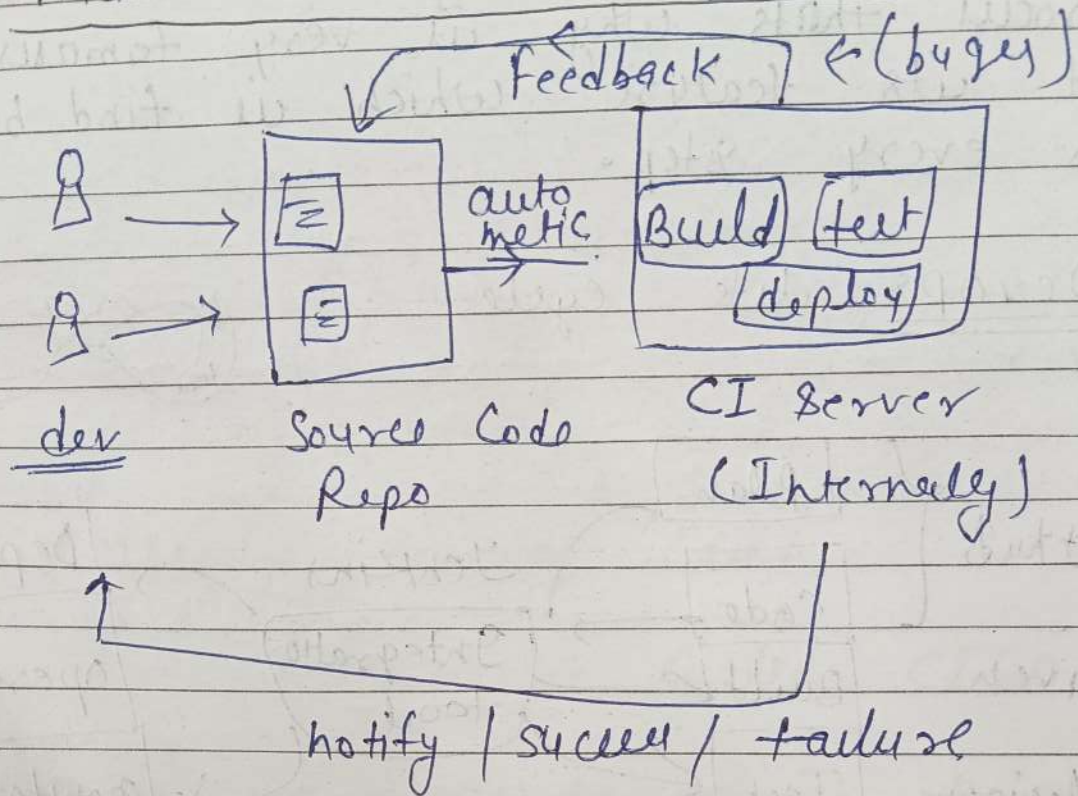 Feedback ← (buges)
auto
metic
Build test
deploy
dev
Source Code
Repo
CI Server
(Internaly)
notify / success / failure